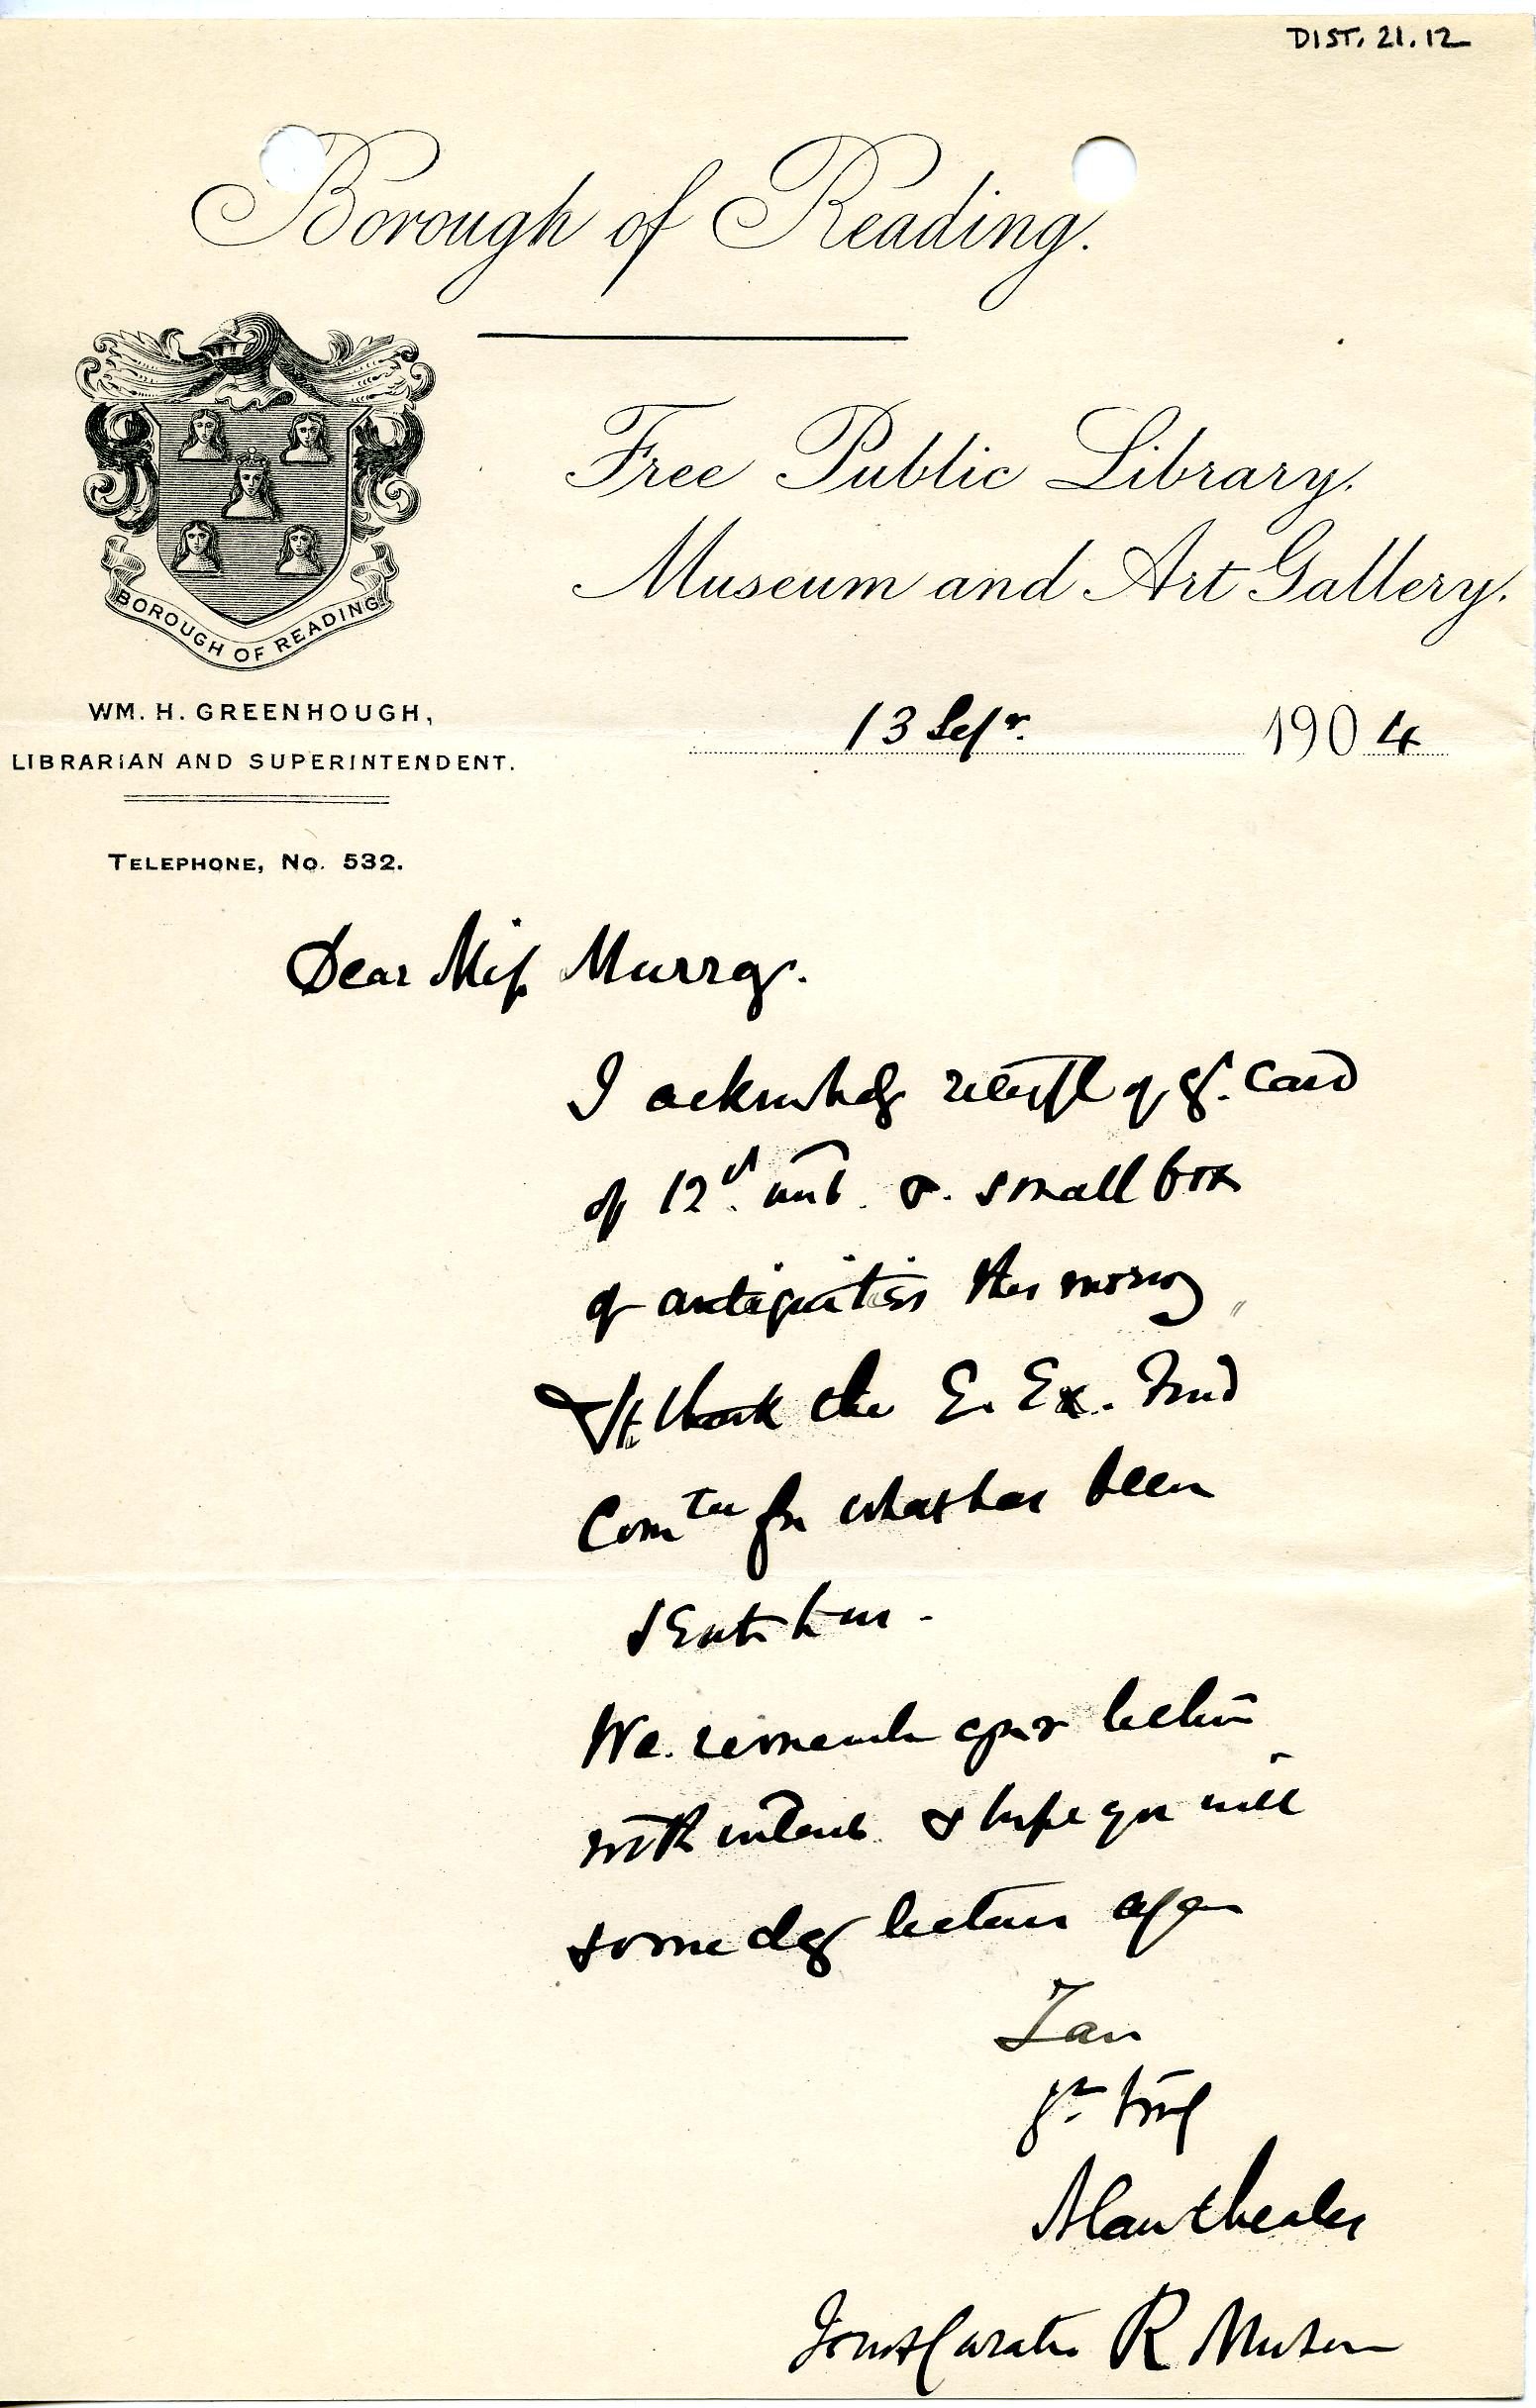 DIST. 21.12
Borough of Reading.
Free Public Library.
Museum and Art Gallery.
BOROUGH OF READING
WM. H. GREENHOUGH,
LIBRARIAN AND SUPERINTENDENT.
13 Sepr. 1904
TELEPHONE, No. 532.
Dear Miss Murray.
I acknowledge receipt of yr. card
of 12th inst. & small box
of antiquities this morning
& thank the E. Ex. Fund
Comtee for what has been
sent to us.
We remember your lecture
with interest & hope you will
some day lecture again
I am
yrs truly
Alan Cheales
Hon Curator R Museum